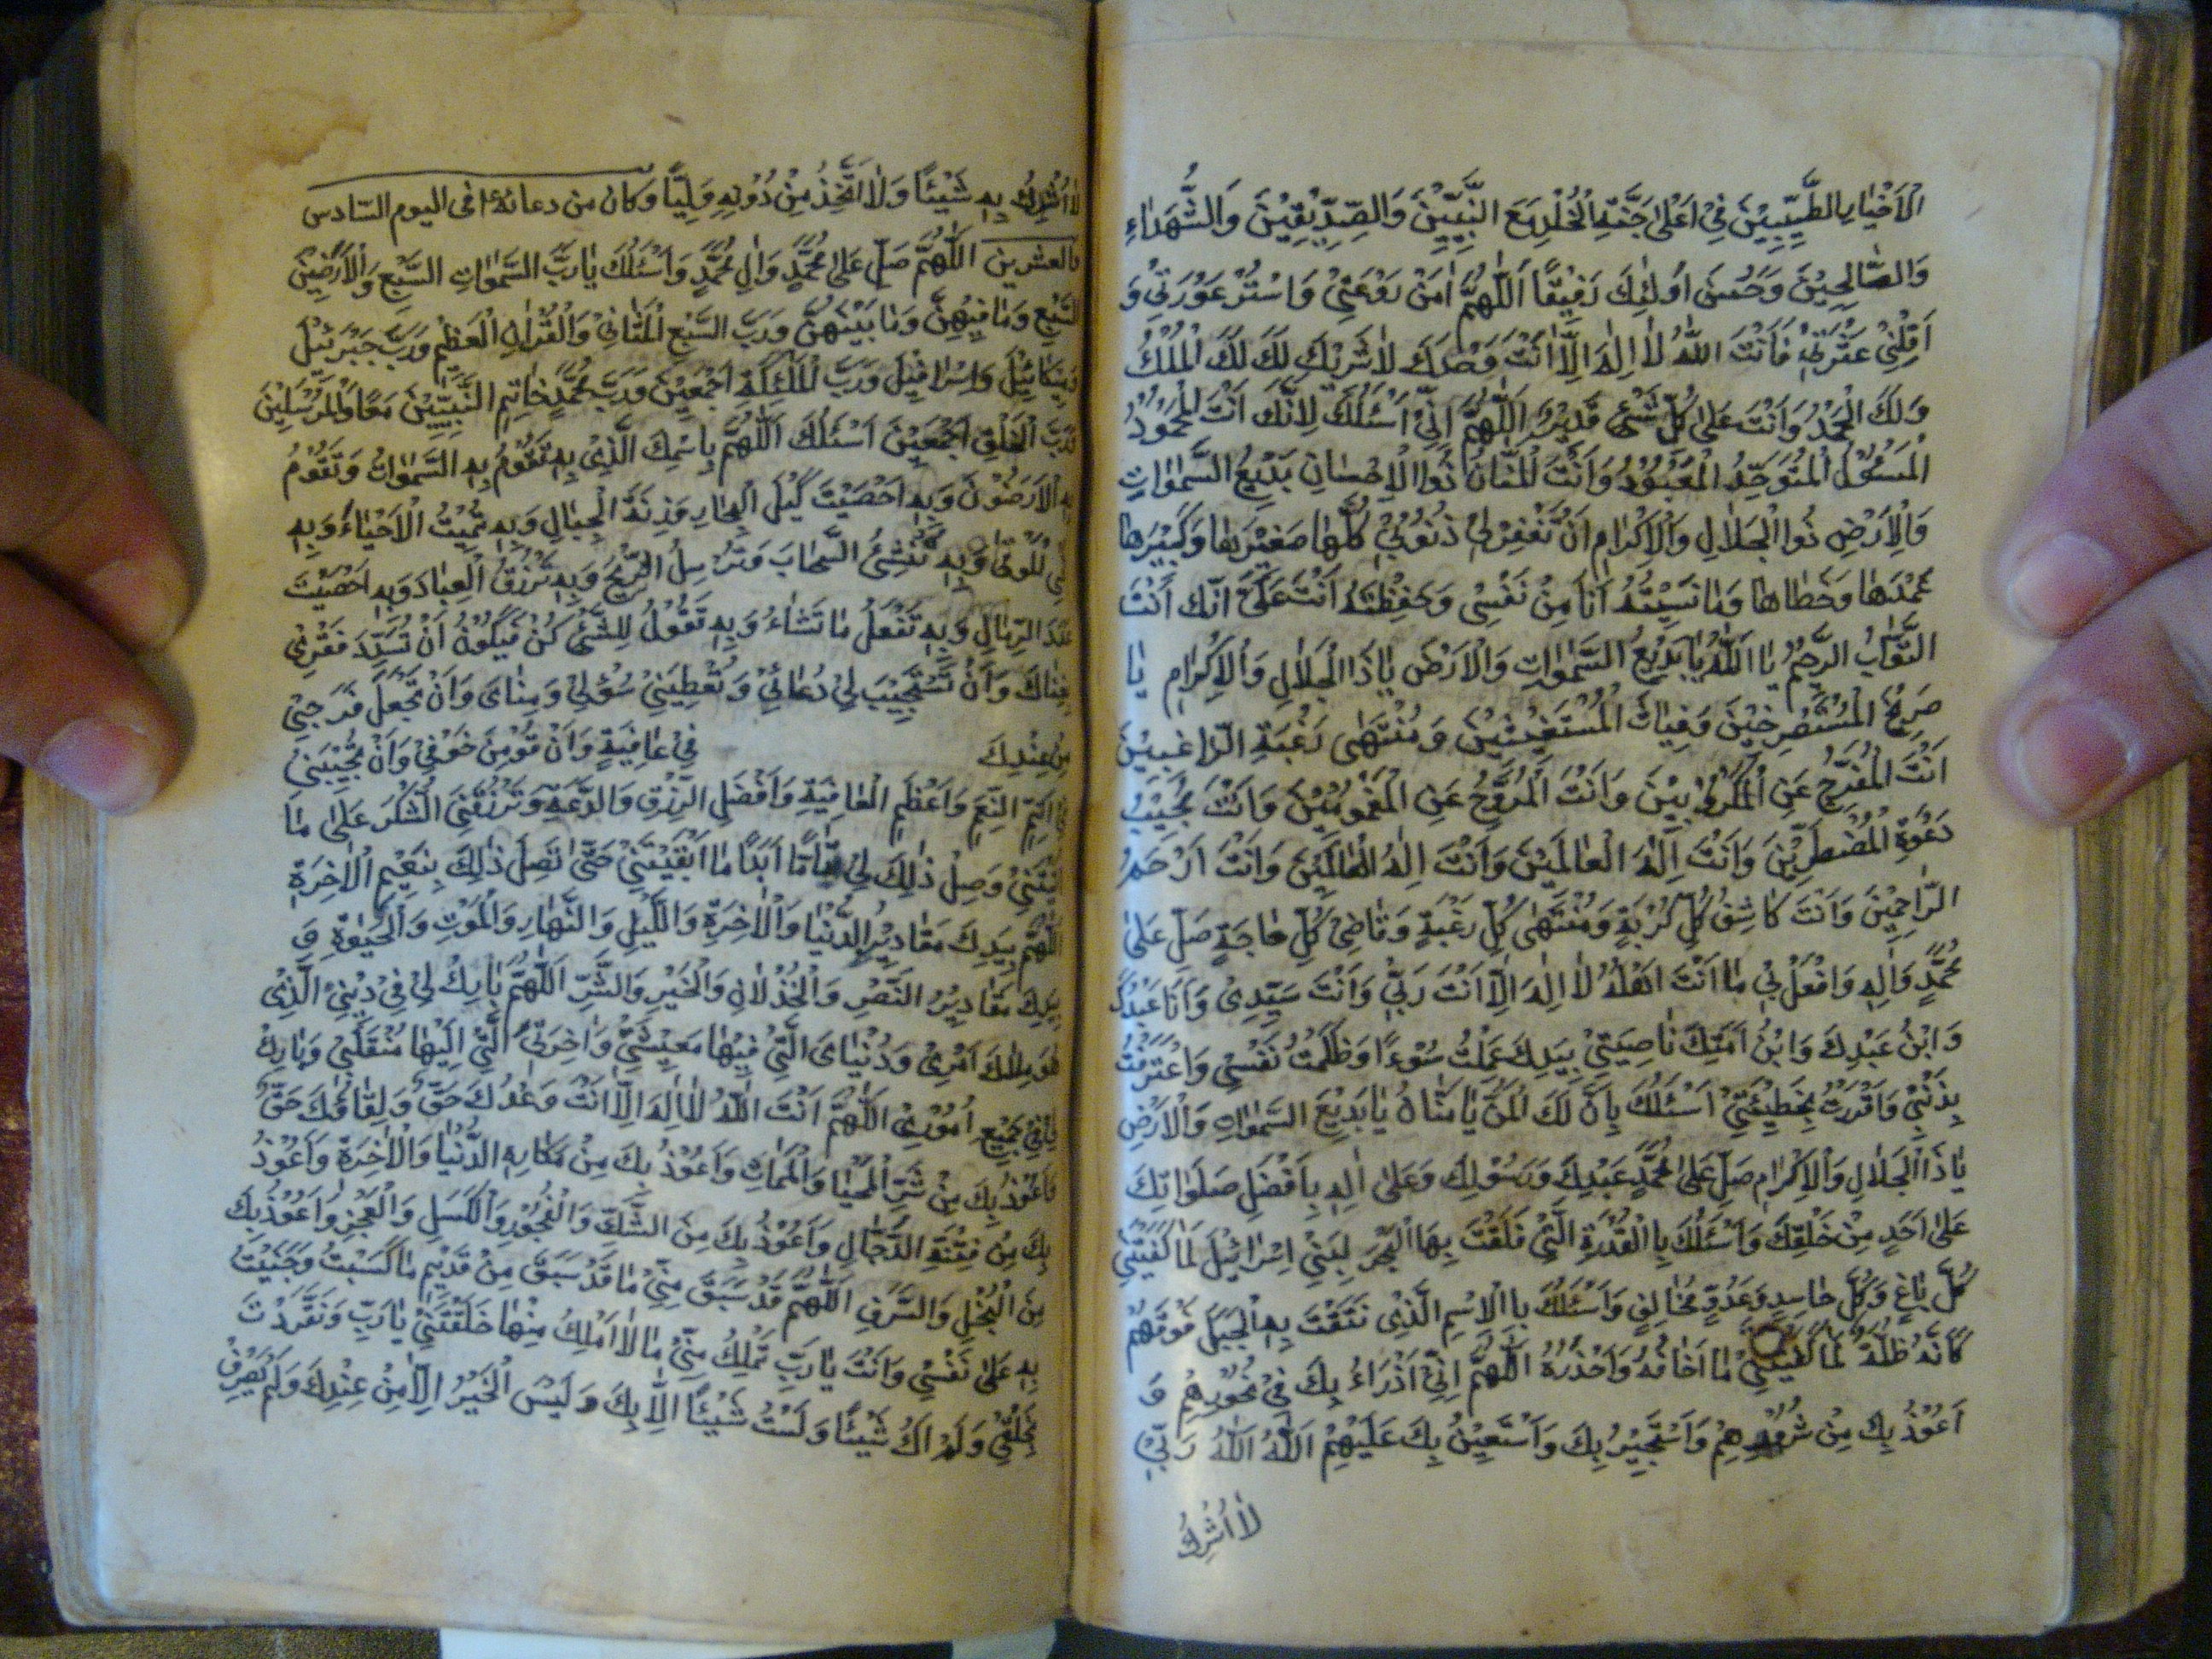 الْاَخْيَارِ الطَّيِّبِيْنَ فِيْ اَعْلٰى جَنَّةِ الْخُلْدِ مَعَ النَّبِيِّيْنَ وَالصِّدِّيْقِيْنَ وَالشُّهَدَاءِ
وَالصَّالِحِيْنَ وَحَسُنَ اُولٰئِكَ رَفِيْقًا اَللّٰهُمَّ اٰمِنْ رَوْعَتِيْ وَاسْتُرْ عَوْرَتِيْ وَ
اَقِلْنِيْ عَثْرَتِيْ فَاَنْتَ اللّٰهُ لَا اِلٰهَ اِلَّا اَنْتَ وَحْدَكَ لَا شَرِيْكَ لَكَ لَكَ الْمُلْكُ
وَلَكَ الْحَمْدُ وَاَنْتَ عَلٰى كُلِّ شَيْءٍ قَدِيْرٌ اَللّٰهُمَّ اِنِّيْ اَسْئَلُكَ لِاَنَّكَ اَنْتَ الْمَحْمُوْدُ
الْمَسْئُوْلُ الْمُتَوَحِّدُ الْمَعْبُوْدُ وَاَنْتَ الْمَنَّانُ ذُو الْاِحْسَانِ بَدِيْعُ السَّمٰوَاتِ
وَالْاَرْضِ ذُو الْجَلَالِ وَالْاِكْرَامِ اَنْ تَغْفِرَ لِيْ ذُنُوْبِيْ كُلَّهَا صَغِيْرَهَا وَكَبِيْرَهَا
عَمْدَهَا وَخَطَاهَا وَمَا نَسِيْتُهُ اَنَا مِنْ نَفْسِيْ وَحَفِظْتَهُ اَنْتَ عَلَيَّ اِنَّكَ اَنْتَ
التَّوَّابُ الرَّحِيْمُ يَا اَللّٰهُ يَا بَدِيْعَ السَّمٰوَاتِ وَالْاَرْضِ يَا ذَا الْجَلَالِ وَالْاِكْرَامِ يَا
صَرِيْخَ الْمُسْتَصْرِخِيْنَ وَغِيَاثَ الْمُسْتَغِيْثِيْنَ وَمُنْتَهٰى رَغْبَةِ الرَّاغِبِيْنَ
اَنْتَ الْمُفَرِّجُ عَنِ الْمَكْرُوْبِيْنَ وَاَنْتَ الْمُرَوِّحُ عَنِ الْمَغْمُوْمِيْنَ وَاَنْتَ مُجِيْبُ
دَعْوَةِ الْمُضْطَرِّيْنَ وَاَنْتَ اِلٰهُ الْعَالَمِيْنَ وَاَنْتَ اِلٰهُ الْعَالَمِيْنَ وَاَنْتَ اَرْحَمُ
الرَّاحِمِيْنَ وَاَنْتَ كَاشِفُ كُلِّ كُرْبَةٍ وَمُنْتَهٰى كُلِّ رَغْبَةٍ وَقَاضِيْ كُلِّ حَاجَةٍ صَلِّ عَلٰى
مُحَمَّدٍ وَاٰلِهِ وَافْعَلْ بِيْ مَا اَنْتَ اَهْلُهُ لَا اِلٰهَ اِلَّا اَنْتَ رَبِّيْ وَاَنْتَ سَيِّدِيْ وَاَنَا عَبْدُكَ
وَابْنُ عَبْدِكَ وَابْنُ اَمَتِكَ نَاصِيَتِيْ بِيَدِكَ عَمِلْتُ سُوْءًا وَظَلَمْتُ نَفْسِيْ وَاعْتَرَفْتُ
بِذَنْبِيْ وَاَقْرَرْتُ بِخَطِيْئَتِيْ اَسْئَلُكَ بِاَنَّ لَكَ الْمَنَّ يَا مَنَّانُ يَا بَدِيْعَ السَّمٰوَاتِ وَالْاَرْضِ
يَا ذَا الْجَلَالِ وَالْاِكْرَامِ صَلِّ عَلٰى مُحَمَّدٍ عَبْدِكَ وَرَسُوْلِكَ وَعَلٰى اٰلِهِ بِاَفْضَلِ صَلَوَاتِكَ
عَلٰى اَحَدٍ مِنْ خَلْقِكَ وَاَسْئَلُكَ بِالْقُدْرَةِ الَّتِيْ فَلَقْتَ بِهَا الْبَحْرَ لِبَنِيْ اِسْرَائِيْلَ لَمَّا كَفَيْتَنِيْ
كُلَّ بَاغٍ وَكُلَّ حَاسِدٍ وَعَدُوٍّ مُخَالِفٍ وَاَسْئَلُكَ بِالْاِسْمِ الَّذِيْ نَتَقْتَ بِهِ الْجَبَلَ فَوْقَهُمْ
كَاَنَّهُ ظُلَّةٌ لَمَّا كَفَيْتَنِيْ مَا اَخَافُهُ وَاَحْذَرُهُ اَللّٰهُمَّ اِنِّيْ اَدْرَاُ بِكَ فِيْ نُحُوْرِهِمْ وَ
اَعُوْذُ بِكَ مِنْ شُرُوْرِهِمْ وَاَسْتَجِيْرُ بِكَ وَاَسْتَعِيْنُ بِكَ عَلَيْهِمْ اَللّٰهُ اَللّٰهُ رَبِّيْ
لَا اُشْرِكُ
لَا اُشْرِكُ بِهِ شَيْئًا وَلَا اَتَّخِذُ مِنْ دُوْنِهِ وَلِيًّا وَكان من دعائه في اليوم السادس
والعشرين اَللّٰهُمَّ صَلِّ عَلٰى مُحَمَّدٍ وَاٰلِ مُحَمَّدٍ وَاَسْئَلُكَ يَا رَبَّ السَّمٰوَاتِ السَّبْعِ وَالْاَرَضِيْنَ
السَّبْعِ وَمَا فِيْهِنَّ وَمَا بَيْنَهُنَّ وَرَبَّ السَّبْعِ الْمَثَانِيْ وَالْقُرْاٰنِ الْعَظِيْمِ وَرَبَّ جَبْرَئِيْلَ
وَمِيْكَائِيْلَ وَاِسْرَافِيْلَ وَرَبَّ الْمَلٰئِكَةِ اَجْمَعِيْنَ وَرَبَّ مُحَمَّدٍ خَاتِمِ النَّبِيِّيْنَ مَعًا وَالْمُرْسَلِيْنَ
وَرَبَّ الْخَلْقِ اَجْمَعِيْنَ اَسْئَلُكَ اَللّٰهُمَّ بِاسْمِكَ الَّذِيْ بِهِ تَقُوْمُ بِهِ السَّمٰوَاتُ وَتَقُوْمُ
بِهِ الْاَرَضُوْنَ وَبِهِ اَحْصَيْتَ كَيْلَ الْبِحَارِ وَزِنَةَ الْجِبَالِ وَبِهِ تُمِيْتُ الْاَحْيَاءَ وَبِهِ
تُحْيِي الْمَوْتٰى وَبِهِ تُنْشِئُ السَّحَابَ وَتُرْسِلُ الرِّيْحَ وَبِهِ تَرْزُقُ الْعِبَادَ وَبِهِ اَحْصَيْتَ
عَدَدَ الرِّمَالِ وَبِهِ تَفْعَلُ مَا تَشَاءُ وَبِهِ تَقُوْلُ لِلشَّيْءِ كُنْ فَيَكُوْنُ اَنْ تَسُدَّ فَقْرِيْ
بِغِنَاكَ وَاَنْ تَسْتَجِيْبَ لِيْ دُعَائِيْ وَتُعْطِيَنِيْ سُؤْلِيْ وَمُنَايَ وَاَنْ تَجْعَلَ فَرَجِيْ
مِنْ عِنْدِكَ فِيْ عَافِيَةٍ وَاَنْ تُؤْمِنَ خَوْفِيْ وَاَنْ تُحْيِيَنِيْ
فِيْ اَتَمِّ النِّعَمِ وَاَعْظَمِ الْعَافِيَةِ وَاَفْضَلِ الرِّزْقِ وَالدَّعَةِ وَتَرْزُقَنِيَ الشُّكْرَ عَلٰى مَا
اٰتَيْتَنِيْ وَصِلْ ذٰلِكَ لِيْ تَامًّا اَبَدًا مَا اَبْقَيْتَنِيْ حَتّٰى تَصِلَ ذٰلِكَ بِنَعِيْمِ الْاٰخِرَةِ
اَللّٰهُمَّ بِيَدِكَ مَقَادِيْرُ الدُّنْيَا وَالْاٰخِرَةِ وَاللَّيْلِ وَالنَّهَارِ وَالْمَوْتِ وَالْحَيٰوةِ وَ
بِيَدِكَ مَقَادِيْرُ النَّصْرِ وَالْخِذْلَانِ وَالْخَيْرِ وَالشَّرِّ اَللّٰهُمَّ بَارِكْ لِيْ فِيْ دِيْنِيَ الَّذِيْ
هُوَ مِلَاكُ اَمْرِيْ وَدُنْيَايَ الَّتِيْ فِيْهَا مَعِيْشَتِيْ وَاٰخِرَتِيَ الَّتِيْ اِلَيْهَا مُنْقَلَبِيْ وَبَارِكْ
لِيْ فِيْ جَمِيْعِ اُمُوْرِيْ اَللّٰهُمَّ اَنْتَ اللّٰهُ لَا اِلٰهَ اِلَّا اَنْتَ وَعْدُكَ حَقٌّ وَلِقَاؤُكَ حَقٌّ
وَاَعُوْذُ بِكَ مِنْ شَرِّ الْمَحْيَا وَالْمَمَاتِ وَاَعُوْذُ بِكَ مِنْ مَكَارِهِ الدُّنْيَا وَالْاٰخِرَةِ وَاَعُوْذُ
بِكَ مِنْ فِتْنَةِ الدَّجَّالِ وَاَعُوْذُ بِكَ مِنَ الشَّكِّ وَالْفُجُوْرِ وَالْكَسَلِ وَالْعَجْزِ وَاَعُوْذُ بِكَ
مِنَ الْبُخْلِ وَالسَّرَفِ اَللّٰهُمَّ قَدْ سَبَقَ مِنِّيْ مَا قَدْ سَبَقَ مِنْ قَدِيْمِ مَا كَسَبْتُ وَجَنَيْتُ
بِهِ عَلٰى نَفْسِيْ وَاَنْتَ يَا رَبِّ تَمْلِكُ مِنِّيْ مَا لَا اَمْلِكُ مِنْهَا خَلَقْتَنِيْ يَا رَبِّ وَتَفَرَّدْتَ
بِخَلْقِيْ وَلَمْ اَكُ شَيْئًا وَلَسْتُ شَيْئًا اِلَّا بِكَ وَلَيْسَ الْخَيْرُ اِلَّا مِنْ عِنْدِكَ وَلَمْ تَصْرِفْ